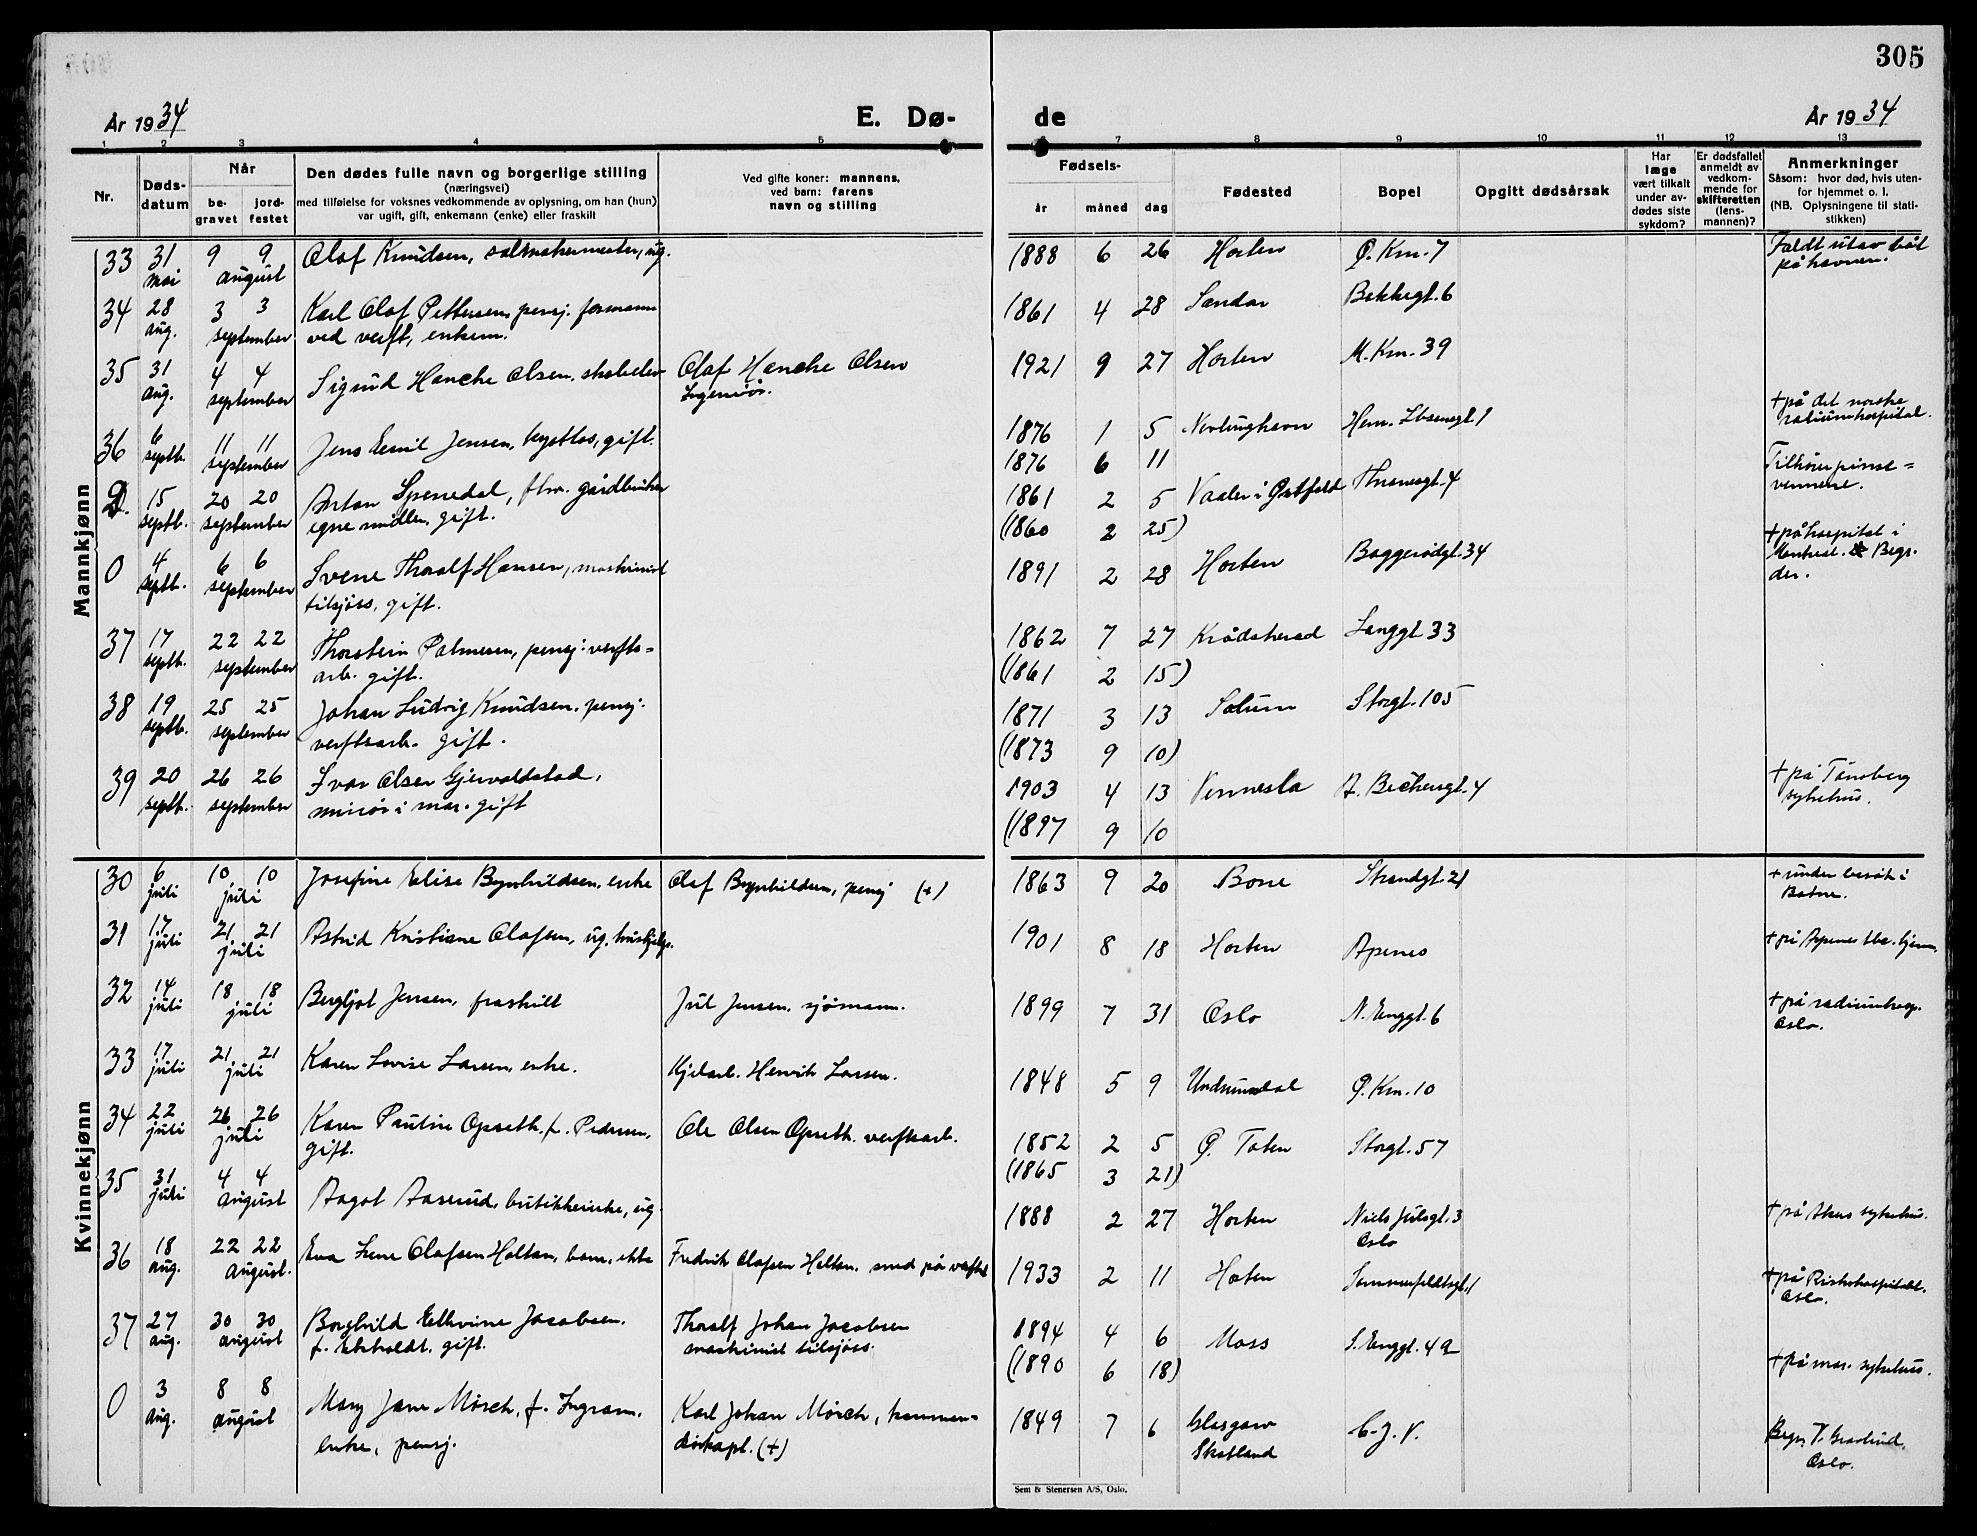 305
År 1934
E. Dø-
de
År 1934
1 2 3 4 5 6 7 8 9 10 11 12 13
Nr.
Døds-
datum
Når
be-
gravet
jord-
festet
Den dødes fulle navn og borgerlige stilling
(næringsvei)
med tilføielse for voksnes vedkommende av oplysning, om han (hun)
var ugift, gift, enkemann (enke) eller fraskilt
Ved gifte koner: mannens,
ved barn: farens
navn og stilling
Fødsels-
år måned dag
Fødested
Bopel
Opgitt dødsårsak
Har
læge
vært tilkalt
under av-
dødes siste
sykdom?
Er dødsfallet
anmeldt av
vedkom-
mende for
skifteretten
(lens-
mannen)?
Anmerkninger
Såsom: hvor død, hvis uten-
for hjemmet o. l.
(NB. Oplysningene til stati-
stikken)
Mannkjønn
33 31 9 9 Olaf Knudsen, salmakermester, ug. 1888 6 26 Horten Ø. Km. 7 Faldt utav båt
mai august på havnen.
34 28 3 3 Karl Olaf Pettersen, pensj. formann 1861 4 28 Sandar Bekkegt. 6
aug. september ved verft, enkem.
35 31 4 4 Sigurd Hanche Olsen, skoleelev Olaf Hanche Olsen 1921 9 27 Horten M. Km. 39
aug. september Ingeniør.
36 6 11 11 Jens Emil Jensen, gift. 1876 1 5 Nevlunghavn Henr. Ibsensgt. 1 + på det norske
septb. september 1876 6 11 radiumhospital.
D. 15 20 20 Anton Spenedal, fhv. gårdbruker 1861 2 5 Vaaler i Østfold Thranesgt. 4 Tilhører pinse-
septb. september egne midler, gift. (1860 2 25) vennene.
0 4 6 6 Svene Thoralf Hansen, maskinist 1891 2 28 Horten Baggerødgt. 34 + på hospital i
septb. september tilsjøss, gift. Begr.
der.
37 17 22 22 Thorstein Palmesen, pensj. verfts- 1862 7 27 Krødsherad Langgt. 33
septb. september arb. gift. (1861 2 15)
38 19 25 25 Johan Ludvig Knudsen, pensj. 1871 3 13 Solum Storgt. 105
septb. september verftsarb. gift. (1873 9 10)
39 20 26 26 Ivar Olsen Gjervoldstad, 1903 4 13 Vennesla A. Bechersgt. 4 + på Tønsberg
septb. september minør i mar. gift (1897 9 10 sykehus.
Kvinnekjønn
30 6 10 10 Josefine Elise Brynhildsen, enke Olaf Brynhildsen, pensj (+) 1863 9 20 Borre Strandgt. 21 + under besøk i
juli juli Botne.
31 17 21 21 Astrid Kristiane Olafsen, ug. hushjelp. 1901 8 18 Horten Apenes + på Apenes tbc. hjem.
juli juli
32 14 18 18 Bergljot Jensen, fraskilt Jul Jensen, sjømann. 1899 7 31 Oslo N. Enggt. 6 + på radiumhosp.
juli juli Oslo.
33 17 21 21 Karen Lovise Larsen, enke. Kjelarb. Henrik Larsen. 1848 5 9 Undrumsdal Ø. Km. 10
juli juli
34 22 26 26 Karen Pauline Opseth, f. Pedersen, Ole Olsen Opseth, verftsarb. 1852 2 5 Ø. Toten Storgt. 57
juli juli gift. (1865 3 21)
35 31 4 4 Aagot Aaserud, butikkeierske, ug. 1888 2 27 Horten Niels Julsgt. 3 + på Akers sykehus.
juli august Oslo
36 18 22 22 Eva Irene Olafsen Holtan, barn, ekte Fredrik Olafsen Holtan, smed på verftet 1933 2 11 Horten Sommerfeldtsgt. 1 + på Rikshospitalet.
aug. august. Oslo.
37 27 30 30 Borghild Ethvine Jacobsen, Thoralf Johan Jacobsen 1894 4 6 Moss S. Enggt. 4 a + på mar. sykehus.
aug. august f. Ekholdt, gift. maskinist tilsjøss. (1890 6 18)
0 3 8 8 Mary Jane Mörch, f. Ingram, Karl Johan Mörch, kommen- 1849 7 6 Glasgow C. J. V. Begr. V. Gravlund,
aug. august enke, pensj. dörkapt. (+) Skotland Oslo.
Sem & Stenersen A/S, Oslo.